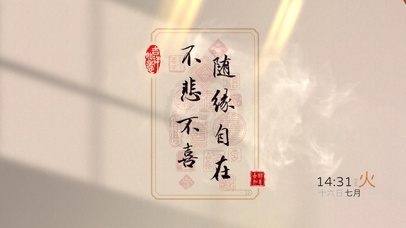 随缘自在
不悲不喜
14:31 火
十六日 七月